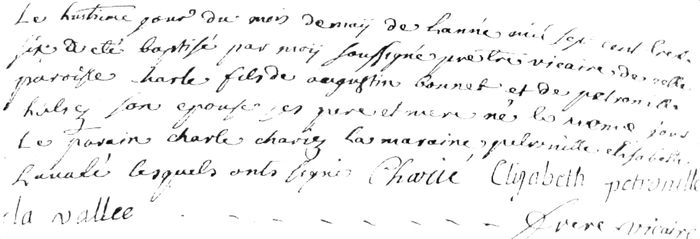 Le huitieme jour du mois de maÿ de lannée mil sept cent tren
six a eté baptisé par moÿ soussigné prêtre vicaire de cette
paroisse charle fils de augustin bonnet et de petronille
son epouse ses pere et mere né le meme jour
Le parain charle chariez La maraine petronille elisabette
Lavalé lesquels ont signé Charié Elizabeth petronille
la vallee frere vicaire